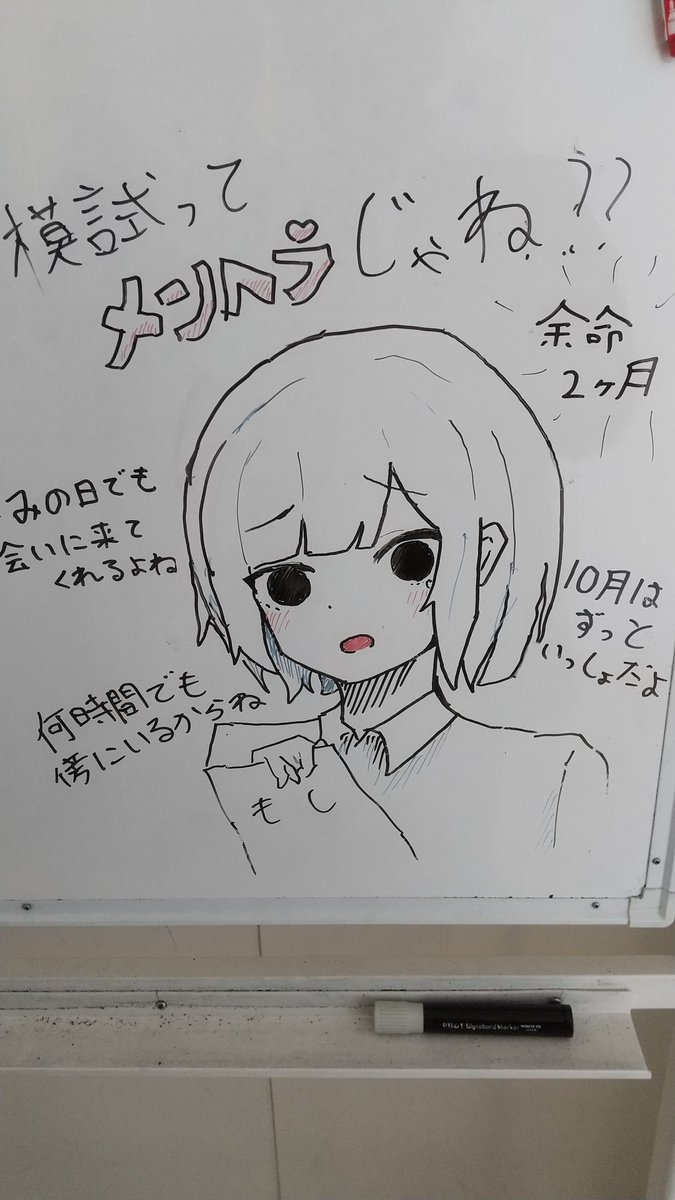 模試って
メンヘラ♡じゃね??
余命
2ヶ月
みの日でも
会いに来て
くれるよね
10月は
ずっと
いっしょだよ
何時間でも
傍にいるからね
もし
PILOT WyteboardMarker